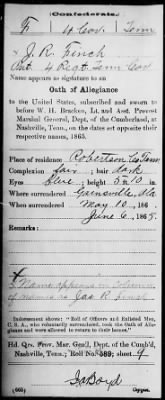 (Confederate.)
F 4 Cav. Tenn
J. R. Finch
4 Regt. Tenn Cav
Name appears as signature to an
Oath of Allegiance
to the United States, subscribed and sworn to
before W. H. Bracken, Lt. and Asst. Provost
Marshal General, Dept. of the Cumberland, at
Nashville, Tenn., on the dates set opposite their
respective names, 1865.
Place of residence Robertson Co Tenn
Complexion fair; hair dark
Eyes blue; height 5 - 10
Where surrendered Gainsville, Ala
When surrendered May 10, 186
June 6, 1865.
Remarks:
Name appears in column
of names as Jas. R. Finch
Indorsement shows: "Roll of Officers and Enlisted Men,
C. S. A., who voluntarily surrendered, took the Oath of Allegiance
and were allowed to return to their homes."
Hd. Qrs. Prov. Mar. Gen'l, Dept. Cumb'd,
Nashville, Tenn.; Roll No. 589; sheet 9
Boyd
Copyist.